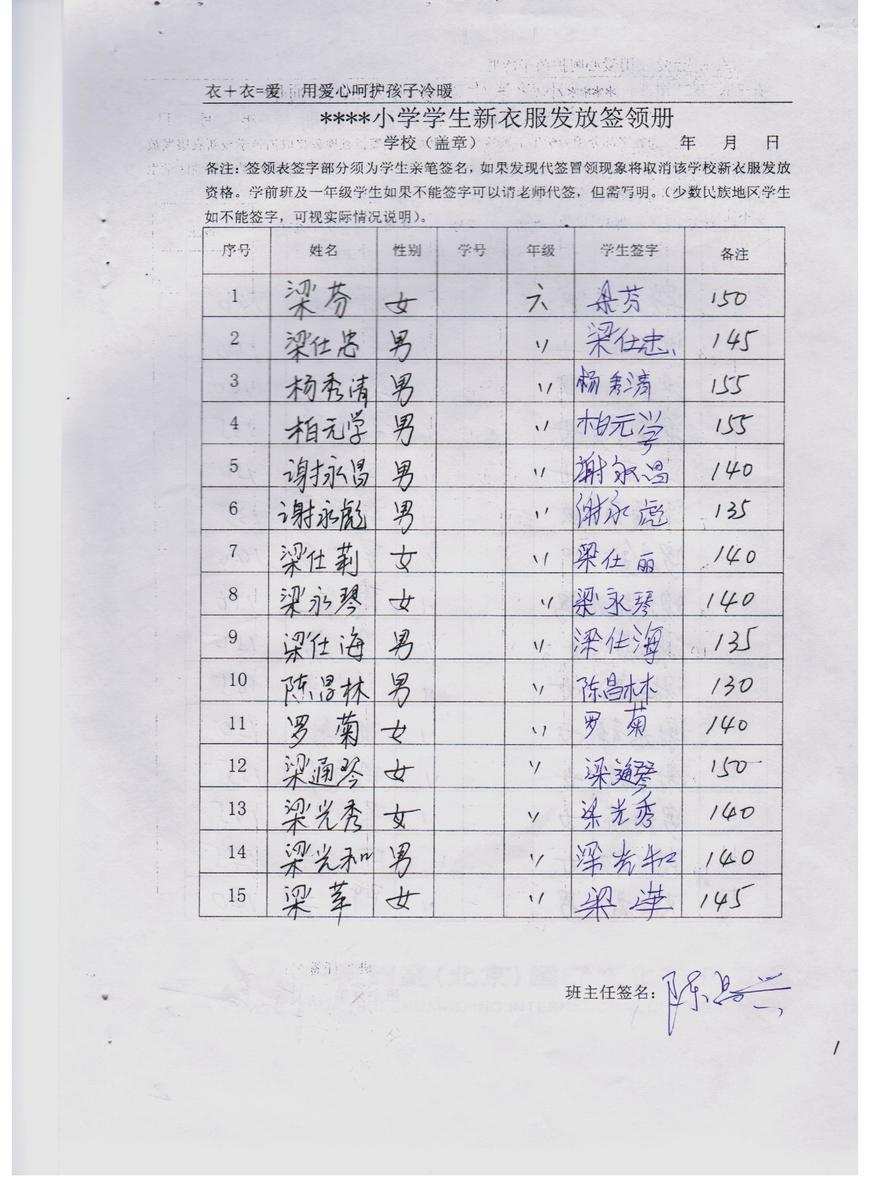 衣+衣=爱 用爱心呵护孩子冷暖
****小学学生新衣服发放签领册
学校（盖章） 年 月 日
备注：签领表签字部分须为学生亲笔签名，如果发现代签冒领现象将取消该学校新衣服发放
资格。学前班及一年级学生如果不能签字可以请老师代签，但需写明。（少数民族地区学生
如不能签字，可视实际情况说明）。
序号 姓名 性别 学号 年级 学生签字 备注
1 梁芬 女 六 梁芬 150
2 梁仕忠 男 〃 梁仕忠 145
3 杨秀清 男 〃 杨秀清 155
4 柏元学 男 〃 柏元学 155
5 谢永昌 男 〃 谢永昌 140
6 谢永彪 男 〃 谢永彪 135
7 梁仕莉 女 〃 梁仕丽 140
8 梁永琴 女 〃 梁永琴 140
9 梁仕海 男 〃 梁仕海 135
10 陈昌林 男 〃 陈昌林 130
11 罗菊 女 〃 罗菊 140
12 梁通琴 女 〃 梁通琴 150
13 梁光秀 女 〃 梁光秀 140
14 梁光和 男 〃 梁光和 140
15 梁苹 女 〃 梁 145
班主任签名：陈昌兴
1